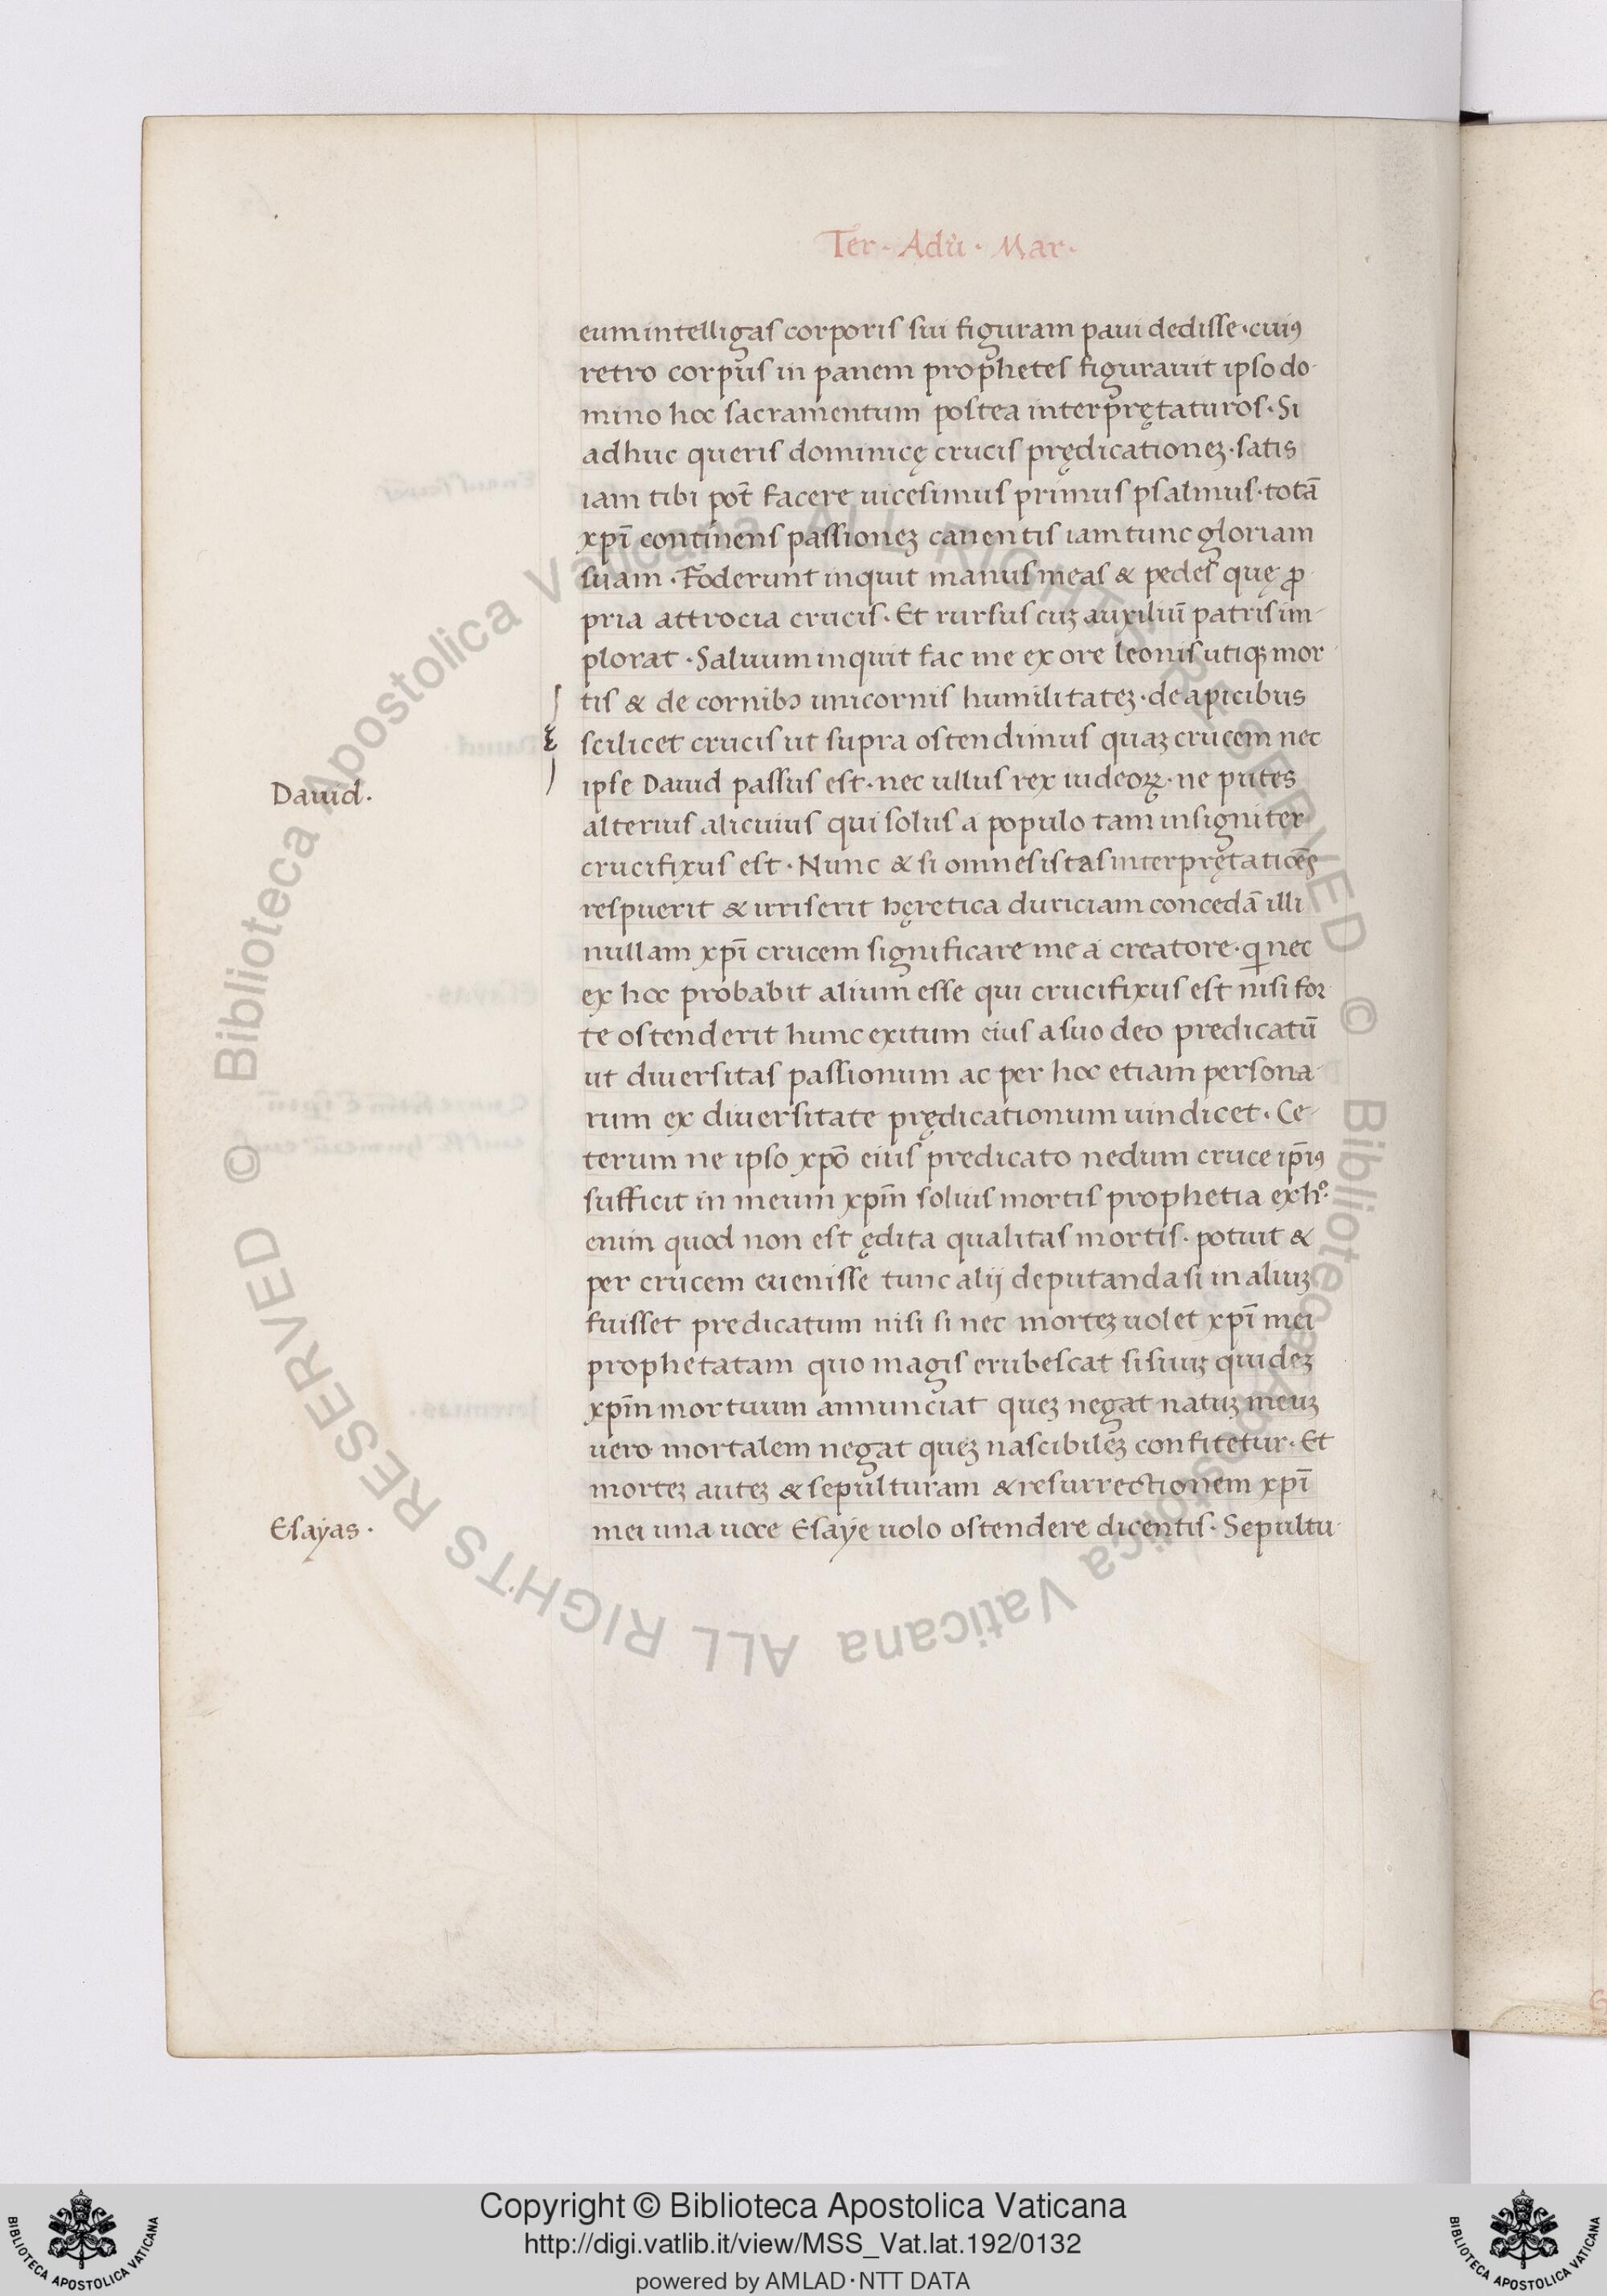 Ter · Adũ · Mar ·
eum intelligas corporis sui figuram paui dedisse · cuiꝰ
retro corpus in panem prophetes figurauit ipso do-
mino hoc sacramentum postea interprętaturos · Si
adhuc queris dominicę crucis prędicationeꝫ · satis
iam tibi pot̃ facere uicesimus primus psalmus · totã
xpĩ continens passioneꝫ canentis iam tunc gloriam
suam · Foderunt inquit manus meas & pedes quę ꝓ
pria attrocia crucis · Et rursus cuꝫ auxiliũ patris im-
plorat · Saluum inquit fac me ex ore leonis utiqꝫ mor-
tis & de cornibꝰ unicornis humilitateꝫ · de apicibus
scilicet crucis ut supra ostendimus quaꝫ crucem nec
ipse Dauid passus est · nec ullus rex iudeoꝝ · ne putes
Dauid ·
alterius alicuius qui solus a populo tam insigniter
crucifixus est · Nunc & si omnes istas interprętatiões
respuerit & irriserit hęretica duriciam concedã illi
nullam xpĩ crucem significare me a creatore · ꝙ nec
ex hoc probabit alium esse qui crucifixus est nisi for-
te ostenderit hunc exitum eius a suo deo predicatũ
ut diuersitas passionum ac per hoc etiam persona-
rum ex diuersitate prędicationum uindicet · Ce-
terum ne ipso xpõ eius predicato nedum cruce ip̃iꝰ
sufficit in meum xpm̃ solius mortis prophetia ex hº ·
enim quod non est ędita qualitas mortis · potuit &
per crucem euenisse tunc alij deputanda si in aliuꝫ
fuisset predicatum nisi si nec morteꝫ uolet xpĩ mei
prophetatam quo magis erubescat si suuꝫ quideꝫ
xpm̃ mortuum annunciat queꝫ negat natuꝫ meuꝫ
uero mortalem negat queꝫ nascibileꝫ confitetur · Et
morteꝫ auteꝫ & sepulturam & resurrectionem xpĩ
mei una uoce Esaye uolo ostendere dicentis · Sepultu-
Esayas ·
© Biblioteca Apostolica Vaticana ALL RIGHTS RESERVED © Biblioteca Apostolica Vaticana ALL RIGHTS RESERVED
Copyright © Biblioteca Apostolica Vaticana
http://digi.vatlib.it/view/MSS_Vat.lat.192/0132
powered by AMLAD·NTT DATA
BIBLIOTECA APOSTOLICA VATICANA
BIBLIOTECA APOSTOLICA VATICANA